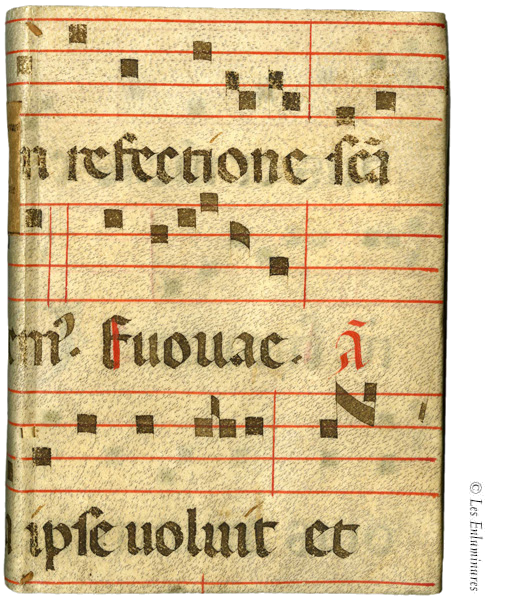 n refectione scã
Euouae. ã
ipse uoluit et
© Les Enluminures